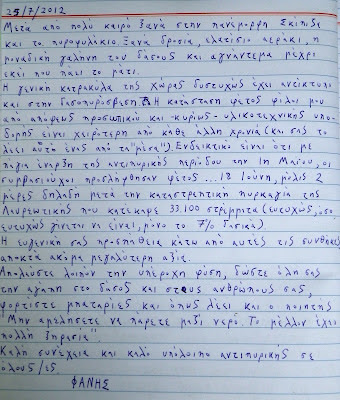 25/7/2012
Μετά από πολύ καιρό ξανά στην πανέμορφη Σκίπιζα
και το πυροφυλάκιο. Ξανά δροσιά, ελατίσιο αεράκι, η
μοναδική γαλήνη του δάσους και αγνάντεμα μέχρι
εκεί που πάει το μάτι.
Η γενική κατρακύλα της χώρας δυστυχώς έχει αντίκτυπο
και στην δασοπυρόσβεση. Η κατάσταση φέτος φίλοι μου
από απόψεως προσωπικού και -κυρίως- υλικοτεχνικής υπο-
δομής είναι χειρότερη από κάθε άλλη χρονιά (και σας το
λέει αυτό ένας από τα "μέσα"). Ενδεικτικό είναι ότι με
πάγια έναρξη της αντιπυρικής περιόδου την 1η Μαΐου, οι
συμβασιούχοι προσλήφθησαν φέτος ... 18 Ιούνη, μόλις 2
μέρες δηλαδή μετά την καταστρεπτική πυρκαγιά της
Λαυρεωτικής που κατέκαψε 33.100 στρέμματα (ευτυχώς, όσο
ευτυχώς γίνεται να είναι, μόνο το 7% δασικά).
Η ευγενική σας προσπάθεια κάτω από αυτές τις συνθήκες
αποκτά ακόμα μεγαλύτερη αξία.
Απολαύστε λοιπόν την υπέροχη φύση, δώστε όλη σας
την αγάπη στο δάσος και στους ανθρώπους σας,
φορτίστε μπαταρίες και όπως λέει και ο ποιητής
"Μην αμελήσετε να πάρετε μαζί νερό. Το μέλλον έχει
πολλή ξηρασία".
Καλή συνέχεια και καλό υπόλοιπο αντιπυρικής σε
όλους/ες.
ΦΑΝΗΣ